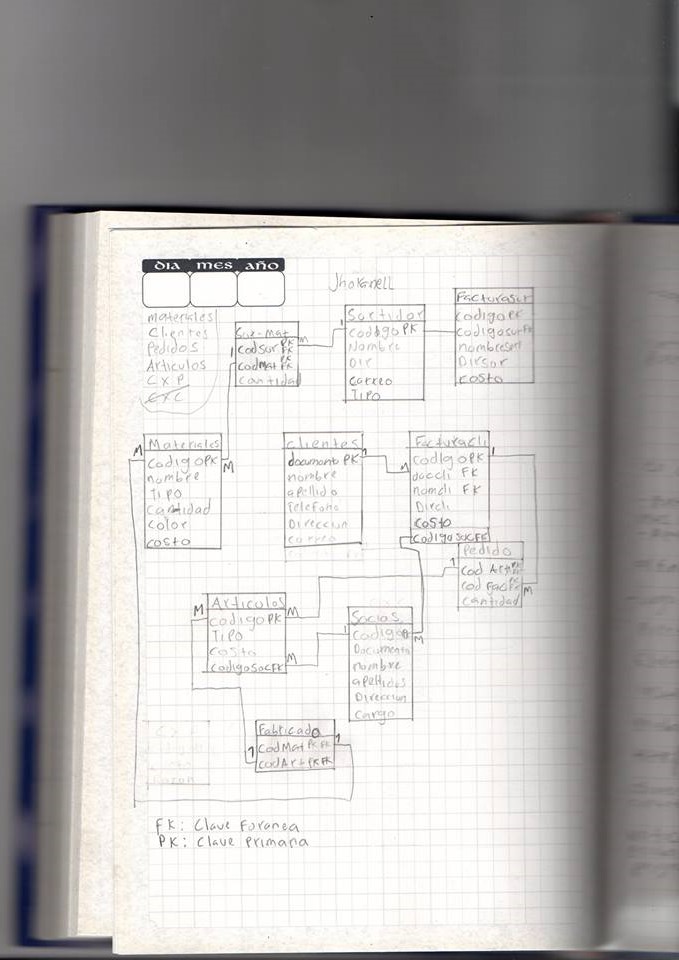 DIA MES AÑO
Jhoranell
Materiales
Clientes
Pedidos
Articulos
CXP
CXC
Sur-Mat
codsur PK FK
codMat PK FK
cantidad
Surtidor
codigo PK
Nombre
Dir
correo
Tipo
Facturasur
codigo PK
codigosur FK
Dirsur
costo
1
M
1
M
Materiales
codigo PK
nombre
Tipo
cantidad
color
costo
M
Clientes
documento PK
nombre
apellido
Telefono
Direccion
correo
1
M
Facturacli
codigo PK
doccli FK
nomcli FK
Dircli
costo
codigosoc FK
1
Pedido
cod Art PK FK
cod Fac PK FK
cantidad
1
M
Articulos
codigo PK
Tipo
costo
codigosoc FK
M
M
M
Socios
codigo
Documento
nombre
apellidos
Direccion
cargo
1
M
Fabricado
codMat PK FK
codArt PK FK
1
1
FK: Clave Foranea
PK: Clave Primaria